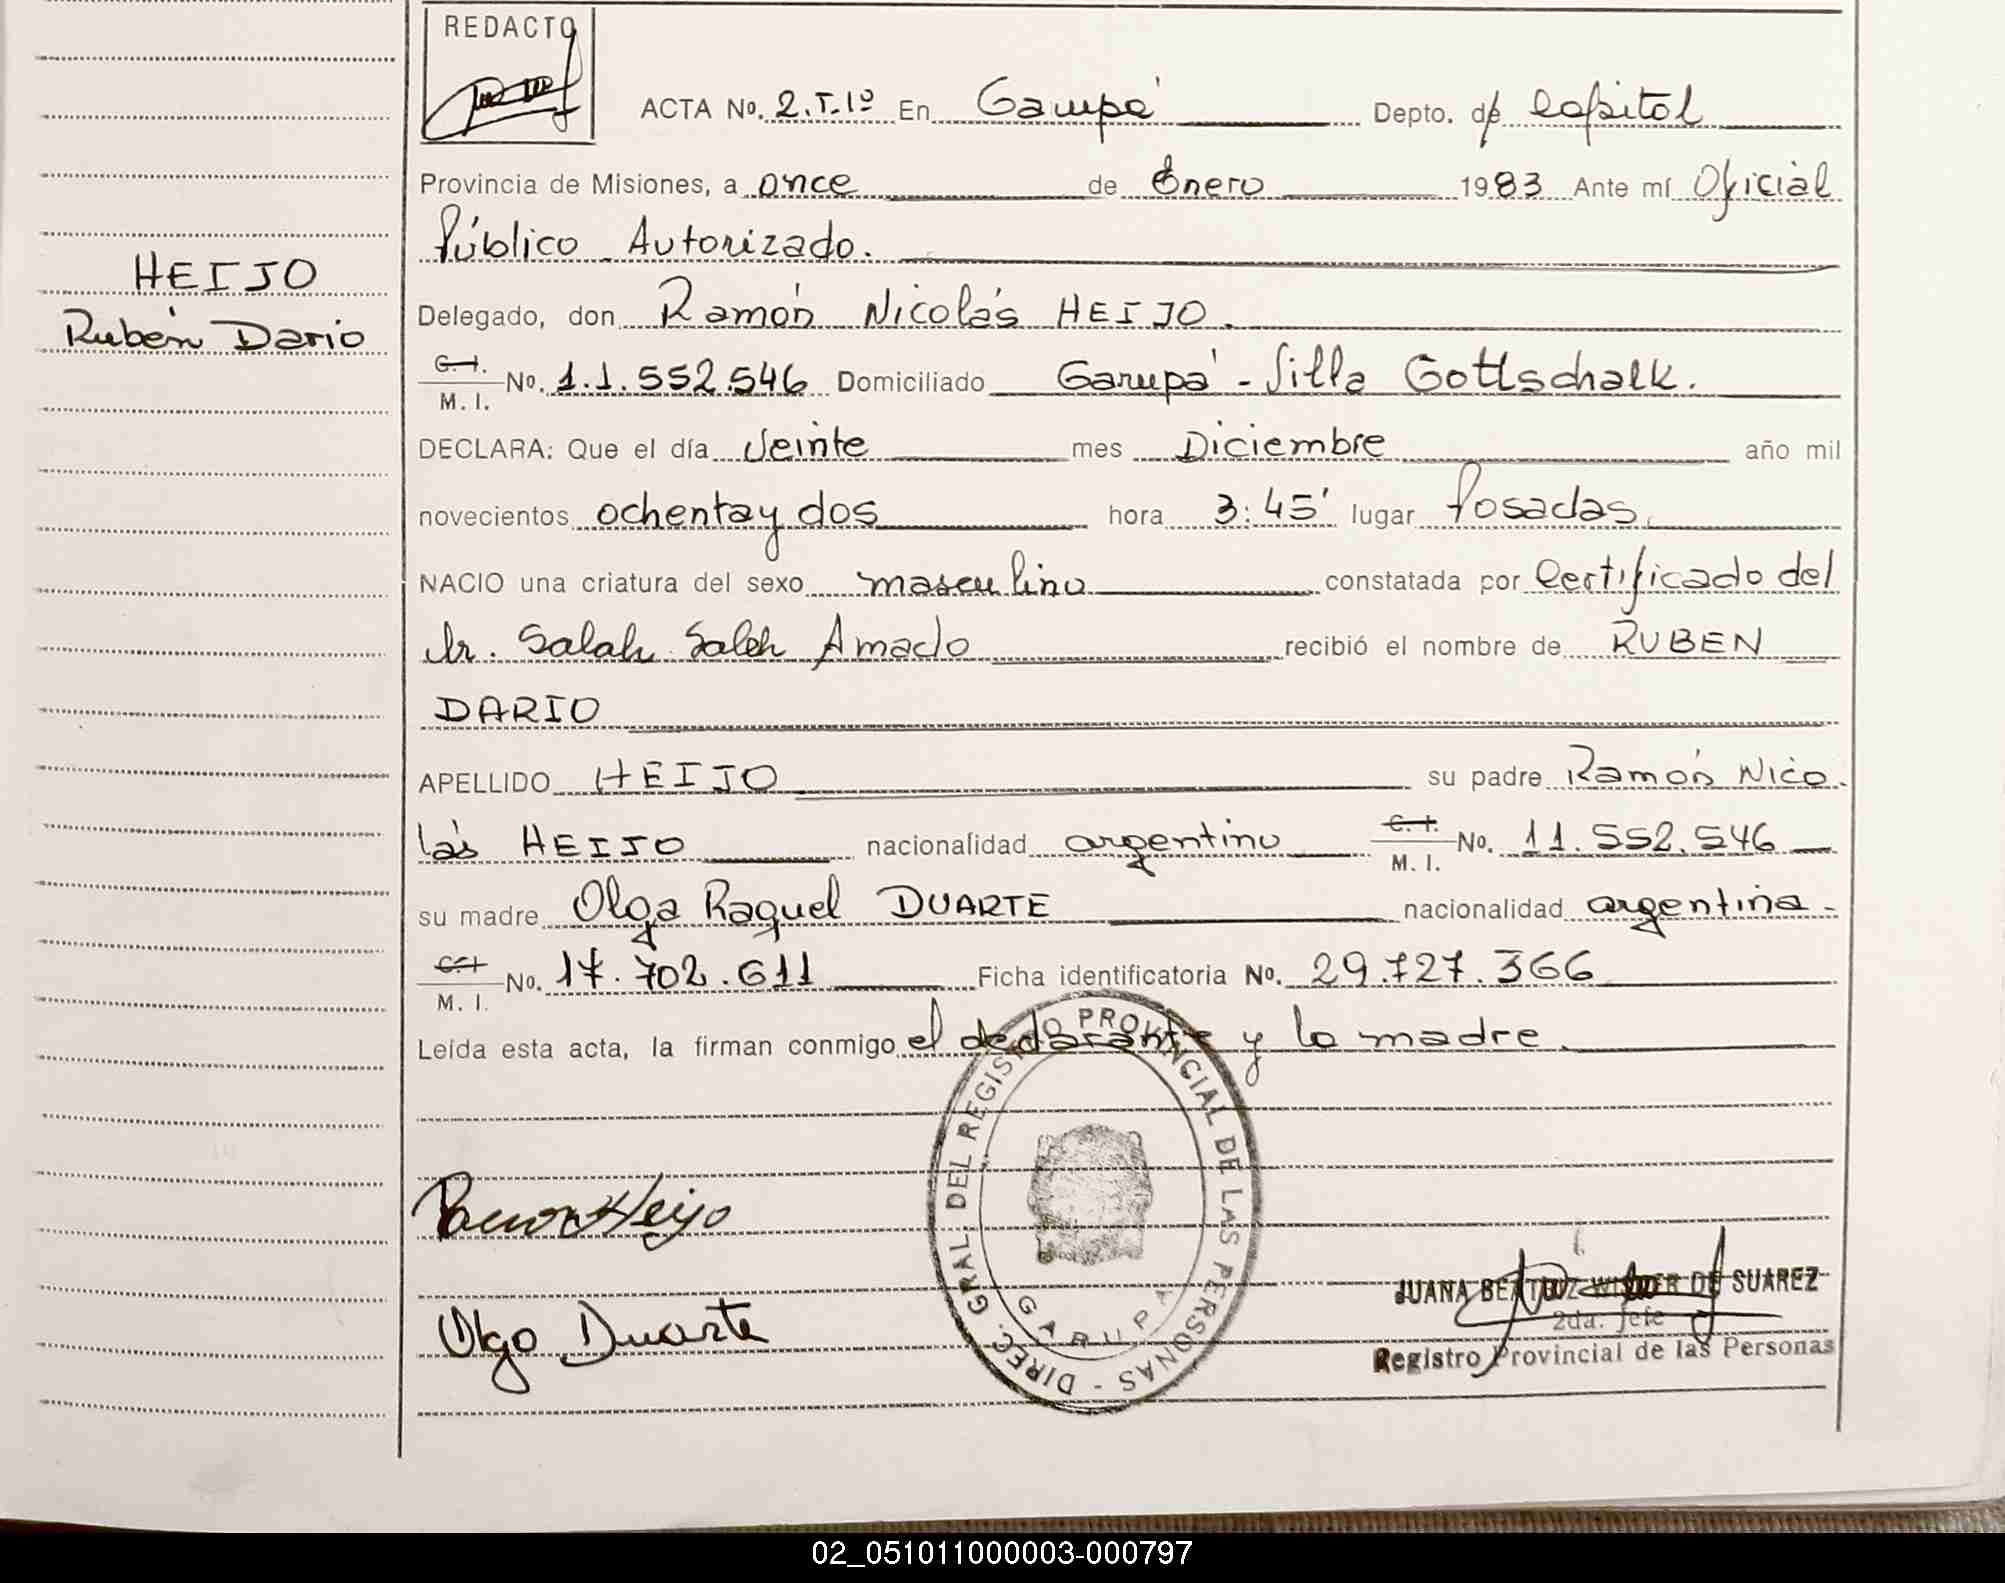 REDACTO
ACTA No. 2.T.1º En Garupá Depto. de Capital
Provincia de Misiones, a once de Enero 1983 Ante mí Oficial
Público Autorizado.
HEIJO
Rubén Dario
Delegado, don Ramón Nicolás HEIJO.
C. I.
M. I. No. 11.552.546 Domiciliado Garupá - Villa Gottschalk.
DECLARA: Que el día veinte mes Diciembre año mil
novecientos ochenta y dos hora 3:45' lugar Posadas.
NACIO una criatura del sexo masculino constatada por Certificado del
Dr. Salah Saleh Amado recibió el nombre de RUBEN
DARIO
APELLIDO HEIJO su padre Ramón Nico-
lás HEIJO nacionalidad argentino C. I.
M. I. No. 11.552.546
su madre Olga Raquel DUARTE nacionalidad argentina -
C. I.
M. I. No. 17.702.611 Ficha identificatoria No. 29.727.366
Leída esta acta, la firman conmigo el declarante y la madre.
DIREC. GRAL. DEL REGISTRO PROVINCIAL DE LAS PERSONAS -
GARUPA
Ramon Heijo
Olga Duarte
JUANA BEATRIZ DE SUAREZ
2da. Jefe
Registro Provincial de las Personas
02_051011000003-000797